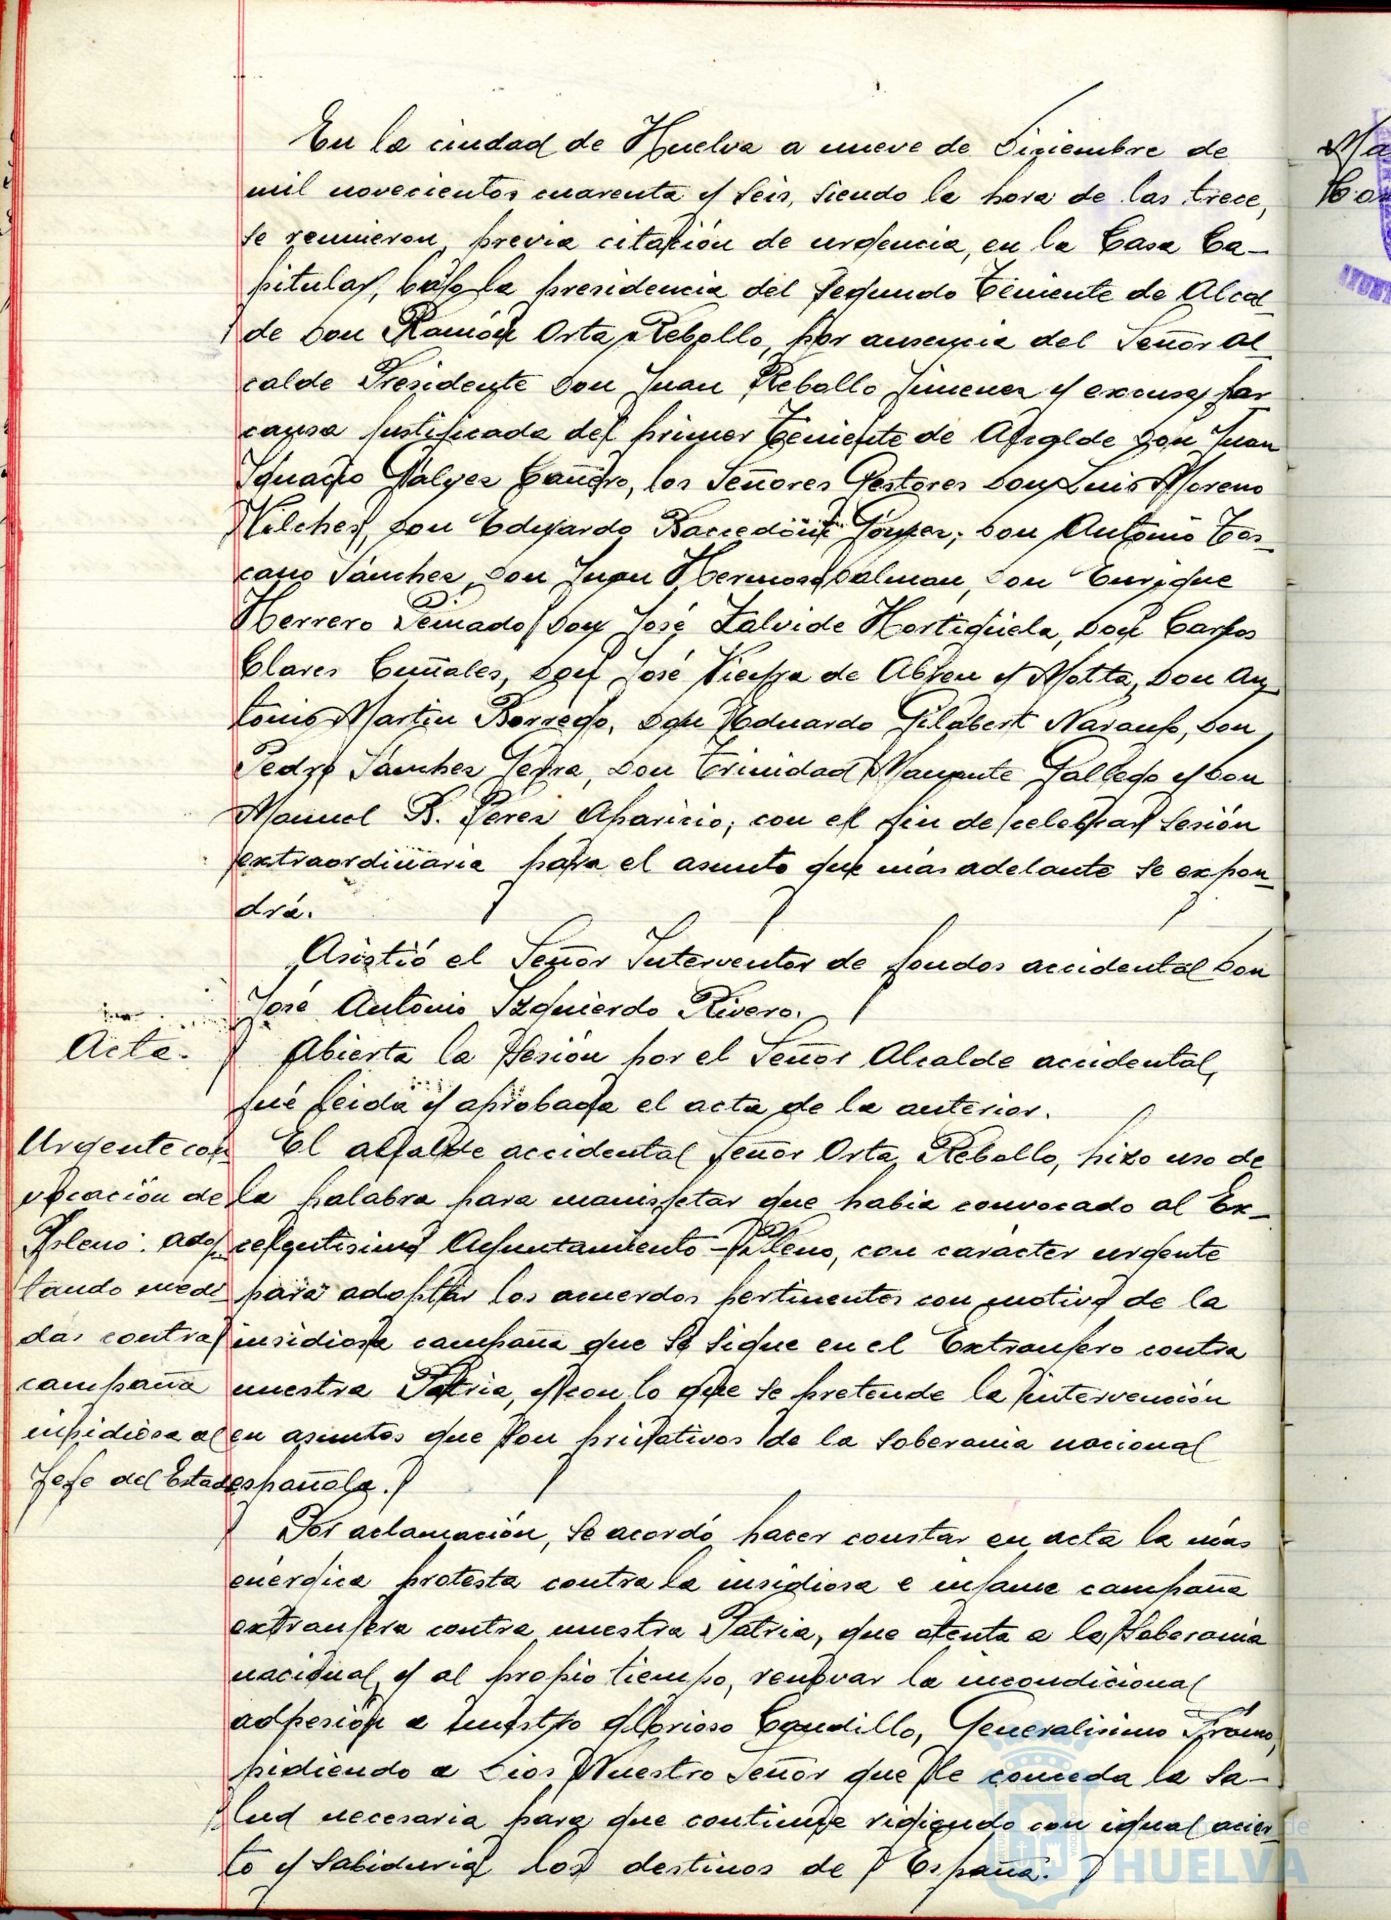 En la ciudad de Huelva a nueve de Diciembre de
mil novecientos cuarenta y seis, siendo la hora de las trece,
se reunieron, previa citación de urgencia, en la Casa Ca-
pitular, bajo la presidencia del Segundo Teniente de Alcal-
de Don Ramón Orta Rebollo, por ausencia del Señor Al-
calde Presidente Don Juan Rebollo Jimenez y excusa por
causa justificada del primer Teniente de Alcalde Don Juan
Ignacio Gálvez Cañero, los Señores Gestores Don Luis Moreno
Vilches, Don Eduardo Gómez; Don Antonio Tos-
cano Sánchez, Don Juan Hermoso Dalman, Don Enrique
Herrero Peinado, Don José Zalvide Hortigüela, Don Carlos
Clares Cuñales, Don José Vieyra de Abreu y Motta, Don An-
tonio Martin Borrego, Don Eduardo Gilabert Naranjo, Don
Pedro Sánchez Serra, Don Trinidad Gallego y Don
Manuel B. Pérez Aparicio; con el fin de celebrar Sesión
extraordinaria para el asunto que más adelante se expon-
drá.
Asistió el Señor Interventor de fondos accidental Don
José Antonio Izquierdo Rivero.
Acta.
Abierta la Sesión por el Señor Alcalde accidental,
fué leida y aprobada el acta de la anterior.
Urgente con
vocación de
Pleno: adop
tando medi
das contra
campaña
insidiosa al
Jefe del Estado
El alcalde accidental Señor Orta Rebollo, hizo uso de
la palabra para manisfetar que habia convocado al Ex-
celentisimo Ayuntamiento-Pleno, con carácter urgente
para adoptar los acuerdos pertinentes con motivo de la
insidiosa campaña que se sigue en el Extranjero contra
nuestra Patria, y con lo que se pretende la intervención
en asuntos que son privativos de la Soberania nacional
española.
Por aclamación, se acordó hacer constar en acta la más
enérgica protesta contra la insidiosa e infame campaña
extranjera contra nuestra Patria, que atenta a la Soberania
nacional, y al propio tiempo, renovar la incondicional
adhesión a nuestro glorioso Caudillo, Generalisimo Franco,
pidiendo a Dios Nuestro Señor que le conceda la Sa-
lud necesaria para que continúe rigiendo con igual acier-
to y Sabiduria los destinos de España.
HUELVA